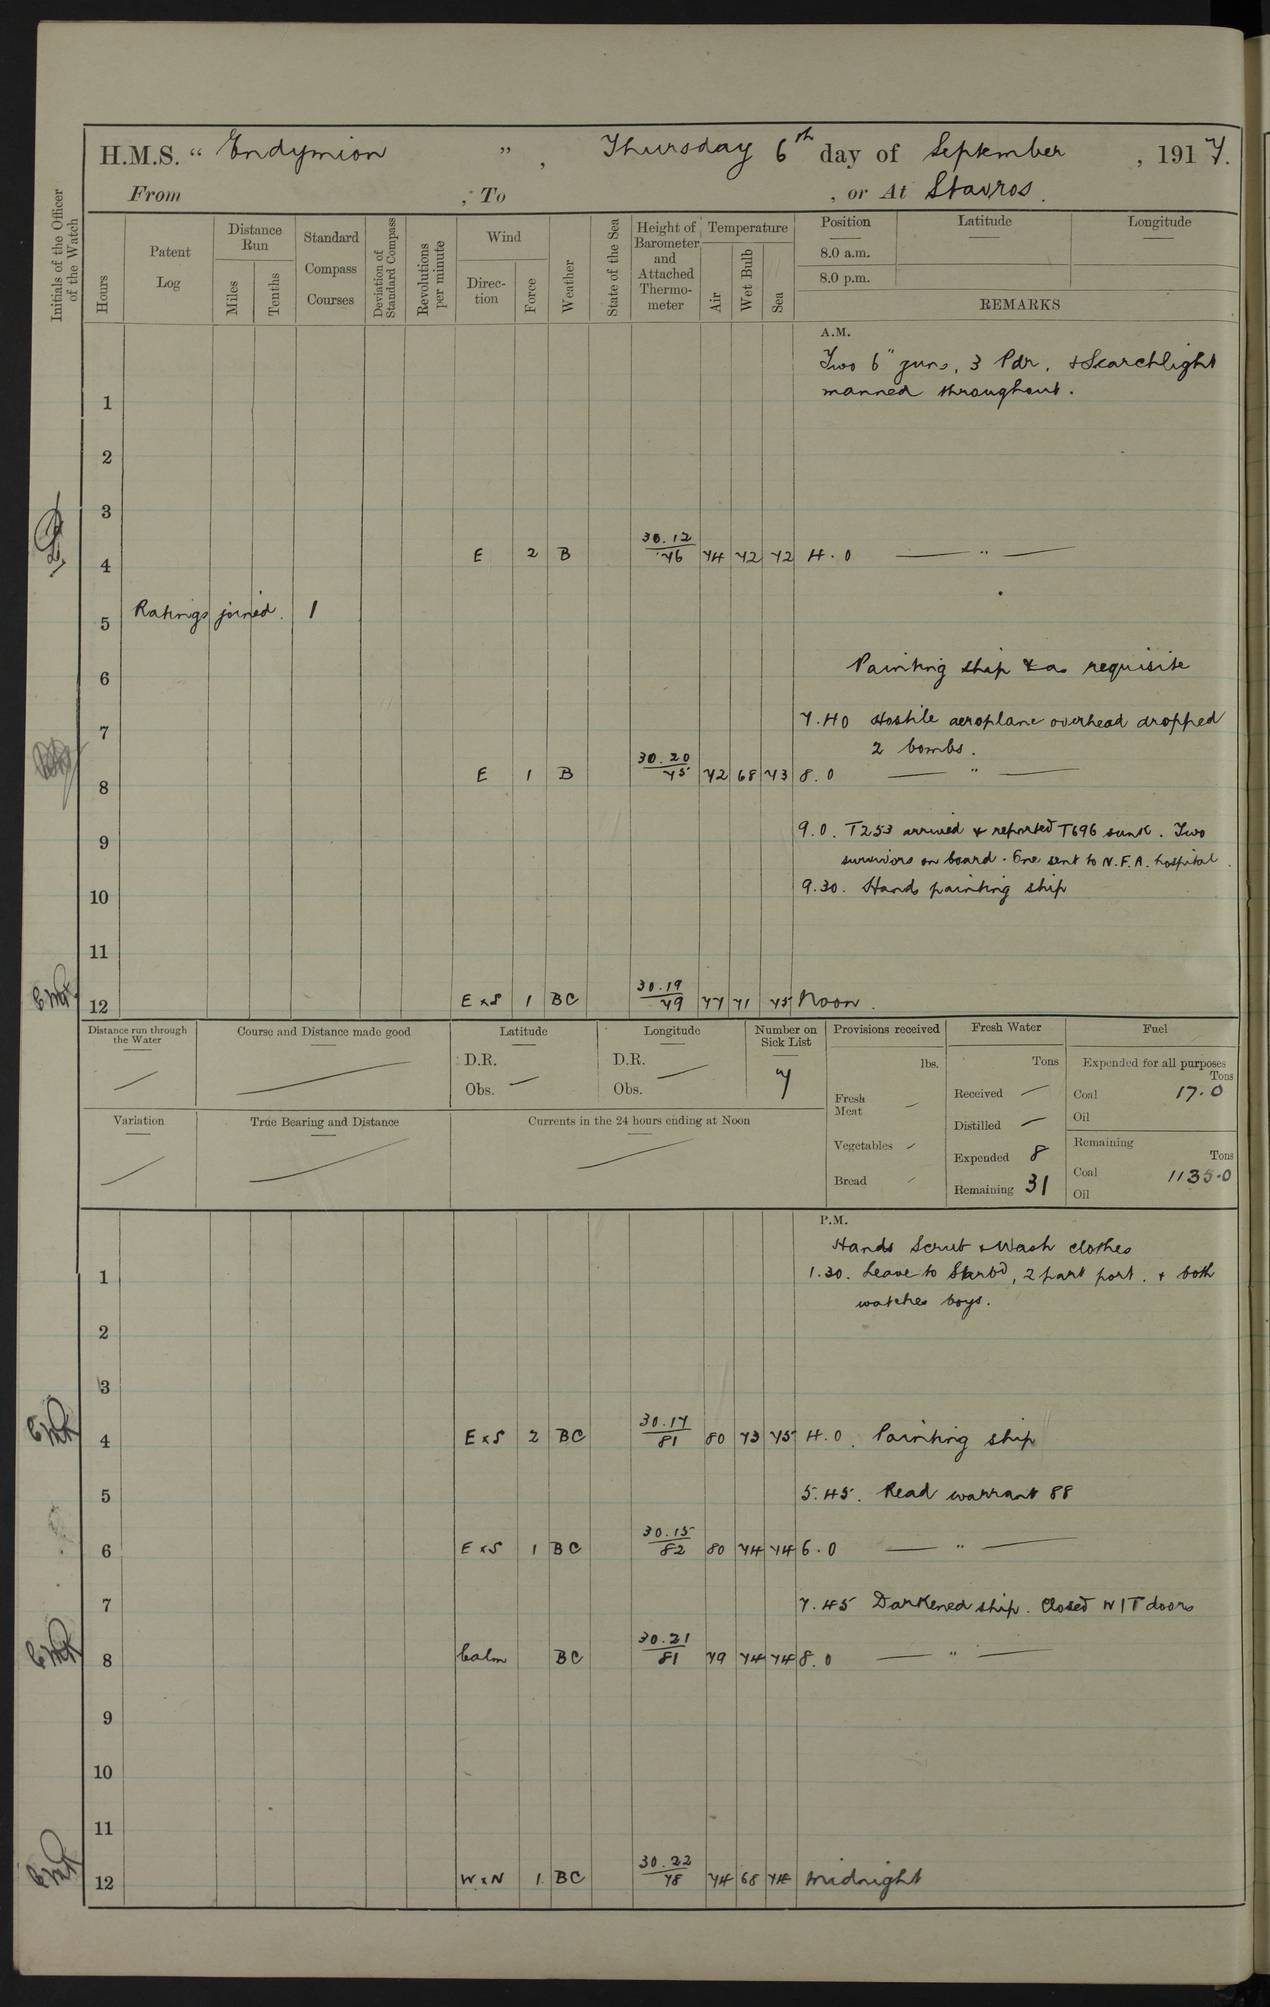 H.M.S. “ Endymion ” , Thursday 6th day of September , 1917.
From , To , or At Stavros.
Initials of the Officer of the Watch
Hours
Patent Log
Distance Run
Miles
Tenths
Standard Compass Courses
Deviation of Standard Compass
Revolutions per minute
Wind
Direction
Force
Weather
State of the Sea
Height of Barometer and Attached Thermometer
Temperature
Air
Wet Bulb
Sea
Position Latitude Longitude
8.0 a.m.
8.0 p.m.
REMARKS
A.M.
Two 6" guns, 3 Pdr. & Searchlight
manned throughout.
1
2
3
4 E 2 B 30.12 76 74 72 72 4.0 — " —
5 Ratings joined. 1
6 Painting ship & as requisite
7 7.40 Hostile aeroplane overhead dropped
2 bombs.
8 E 1 B 30.20 75 72 68 73 8.0 — " —
9 9.0. T253 arrived & reported T696 sunk. Two
survivors on board. One sent to N.F.A. hospital.
10 9.30. Hands painting ship
11
12 E x S 1 BC 30.19 79 77 71 75 Noon.
Distance run through the Water
Course and Distance made good
Latitude
D.R.
Obs. —
Longitude
D.R.
Obs. —
Number on Sick List
7
Provisions received
lbs.
Fresh Meat —
Vegetables —
Bread —
Fresh Water
Tons
Received —
Distilled —
Expended 8
Remaining 31
Fuel
Expended for all purposes
Tons
Coal 17.0
Oil
Remaining
Tons
Coal 1135.0
Oil
Variation
True Bearing and Distance
Currents in the 24 hours ending at Noon
P.M.
Hands Scrub & Wash clothes
1 1.30. Leave to Starbd, 2 part port. & both
watches boys.
2
3
4 E x S 2 BC 30.17 81 80 73 75 4.0. Painting ship
5 5.45. Read warrant 88
6 E x S 1 BC 30.15 82 80 74 74 6.0 — " —
7 7.45 Darkened ship. Closed W/T doors
8 Calm BC 30.21 81 79 74 74 8.0 — " —
9
10
11
12 W x N 1. BC 30.22 78 74 68 74 Midnight